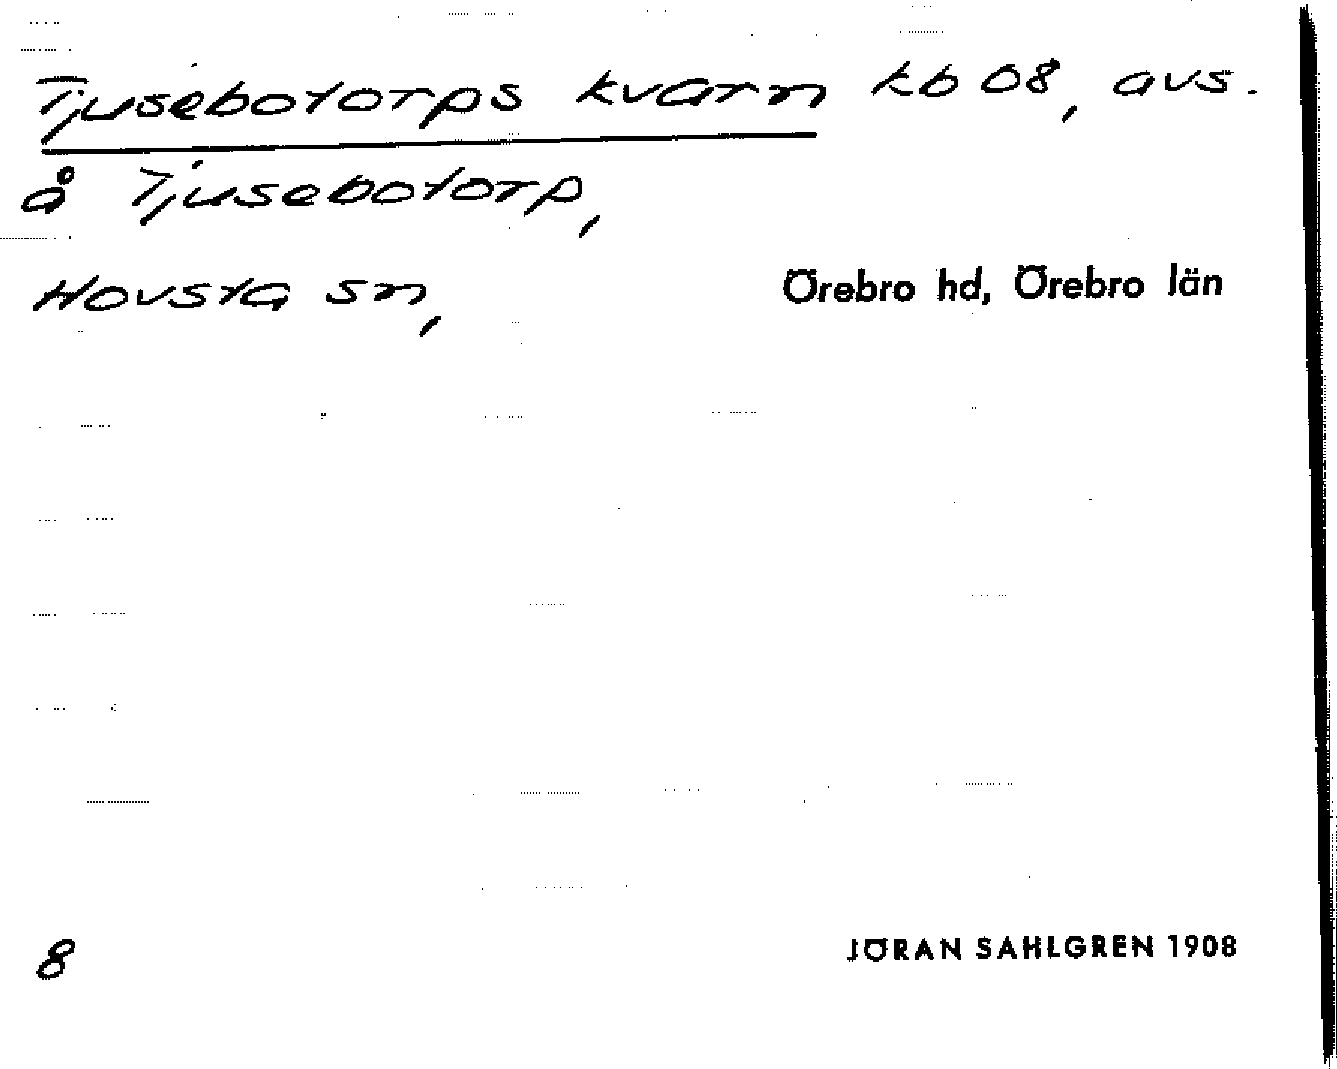 Tjusebotorps kvarn kb 08, avs.
å Tjusebotorp,
Hovsta sn, Örebro hd, Örebro län
8 JÖRAN SAHLGREN 1908